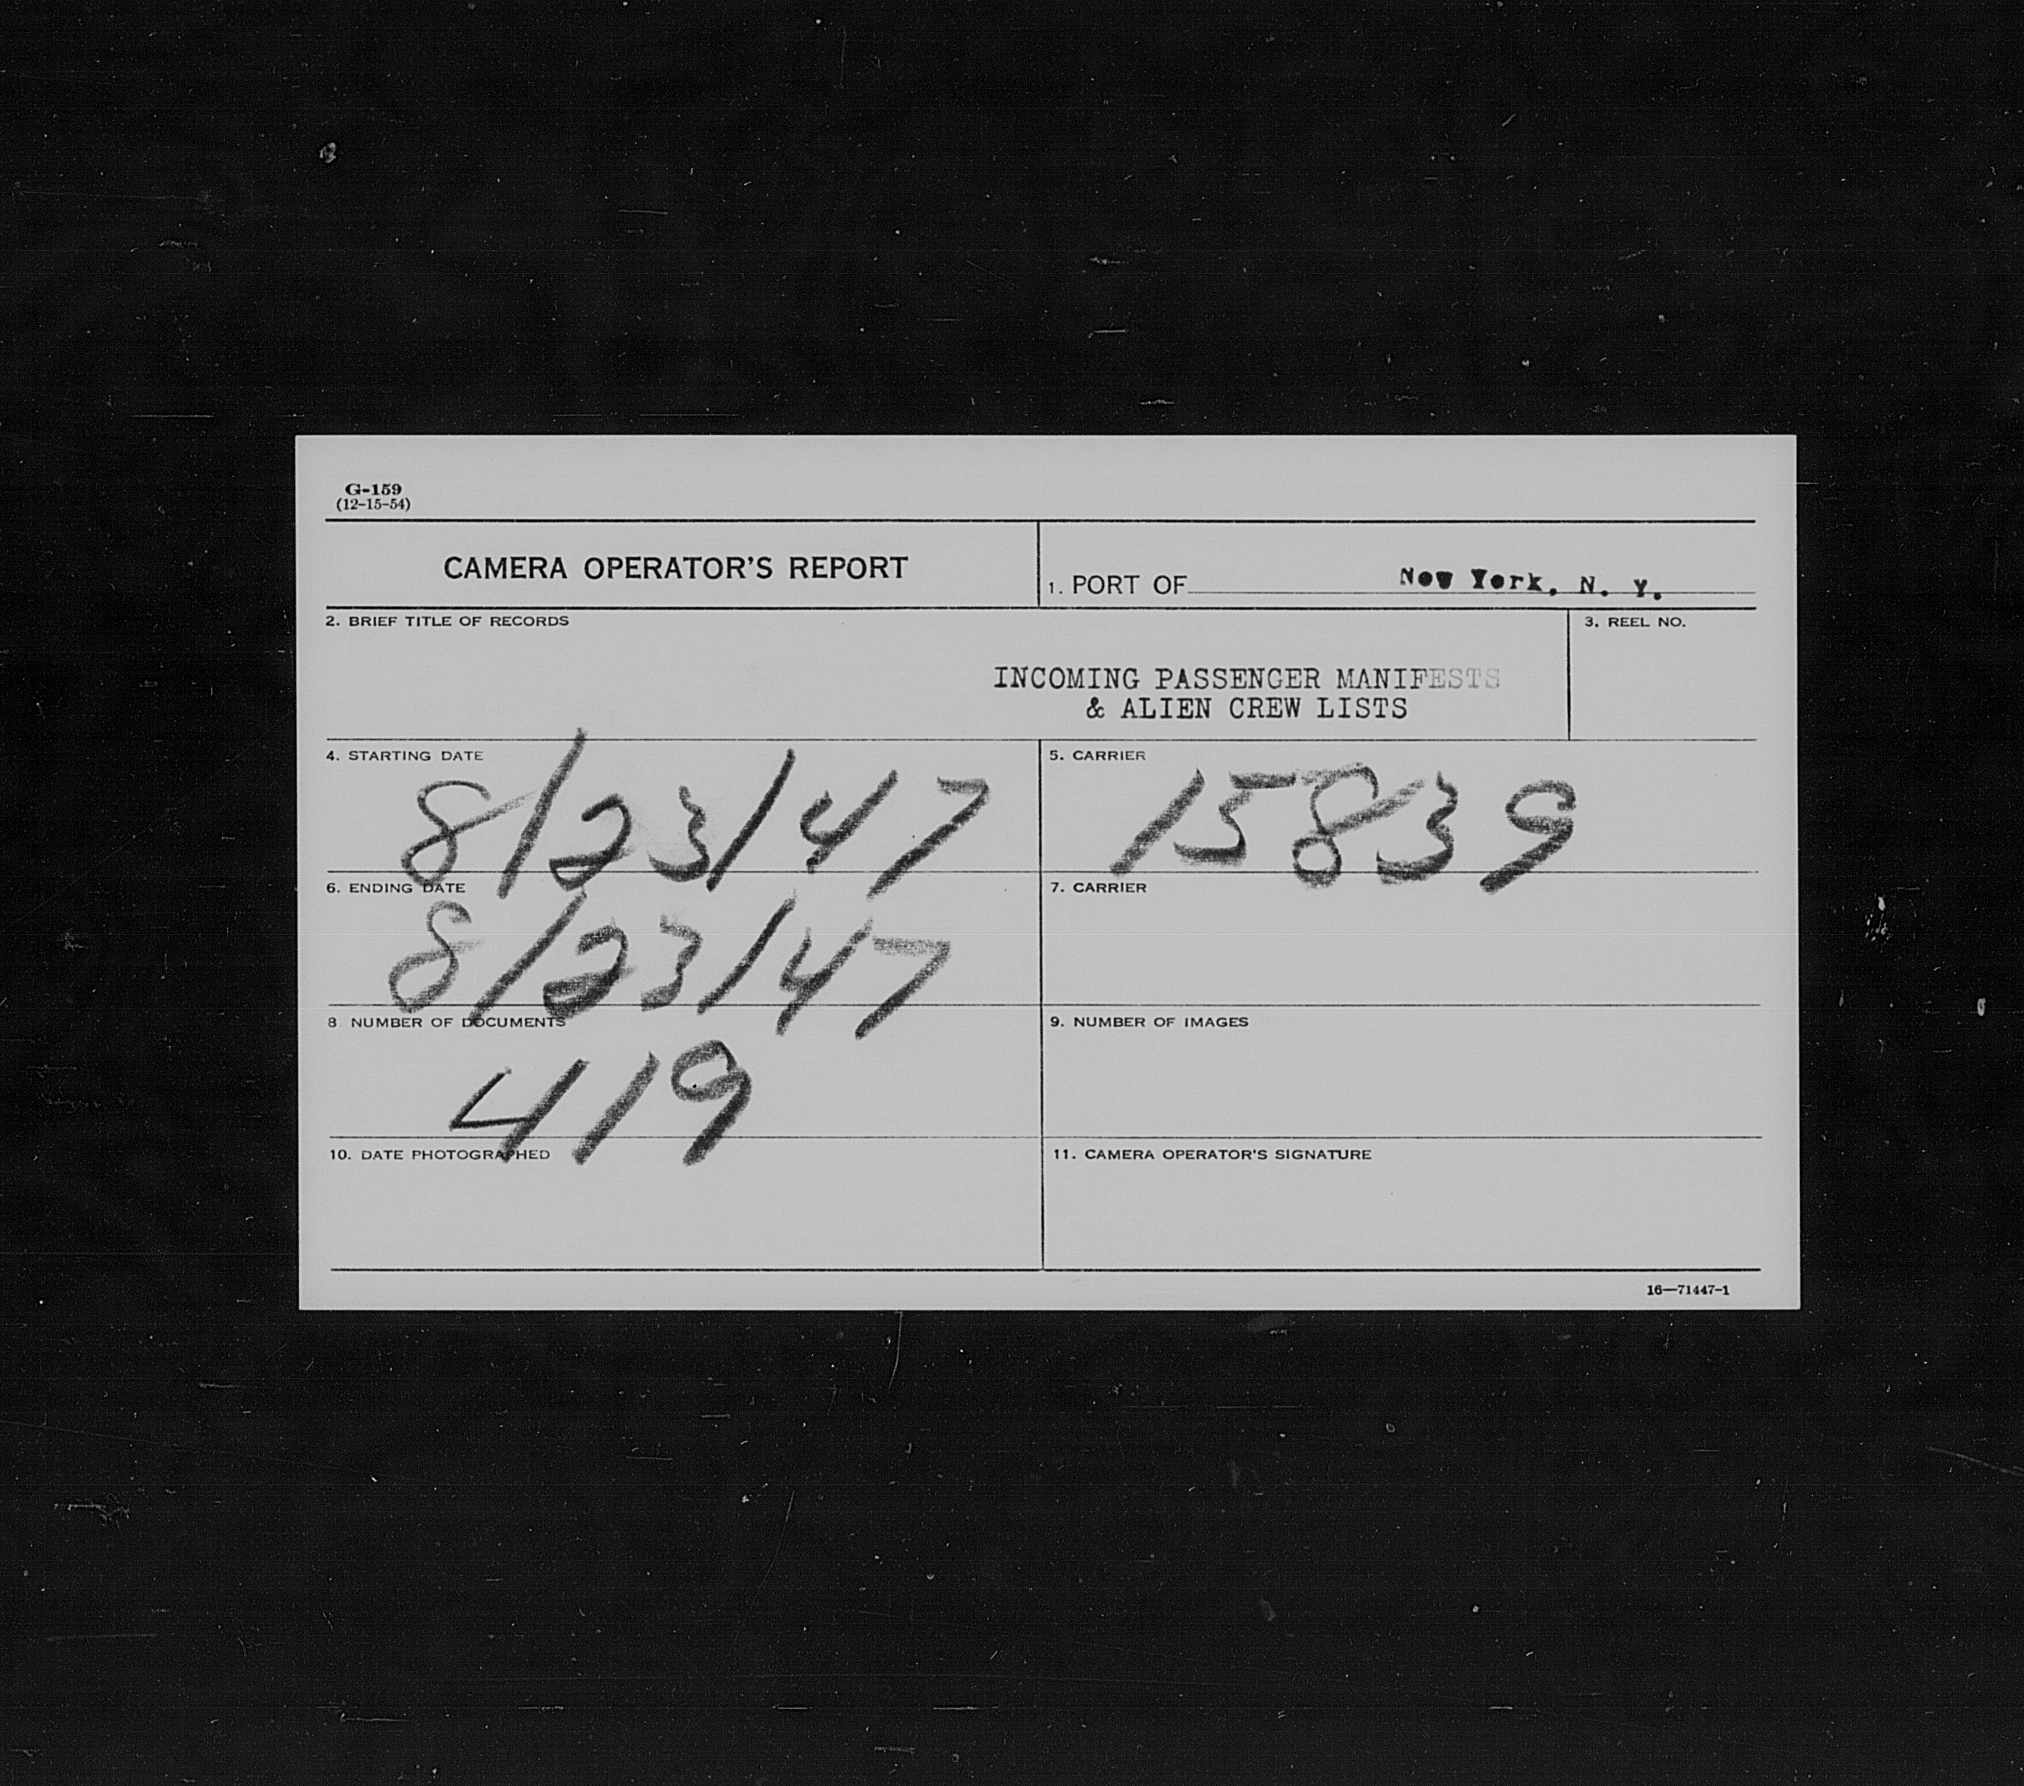 G-159
(12-15-54)
CAMERA OPERATOR'S REPORT
1. PORT OF New York, N. Y.
2. BRIEF TITLE OF RECORDS
3. REEL NO.
INCOMING PASSENGER MANIFESTS
& ALIEN CREW LISTS
4. STARTING DATE
8/23/47
5. CARRIER
15839
6. ENDING DATE
8/23/47
7. CARRIER
8 NUMBER OF DOCUMENTS
419
9. NUMBER OF IMAGES
10. DATE PHOTOGRAPHED
11. CAMERA OPERATOR'S SIGNATURE
16—71447-1